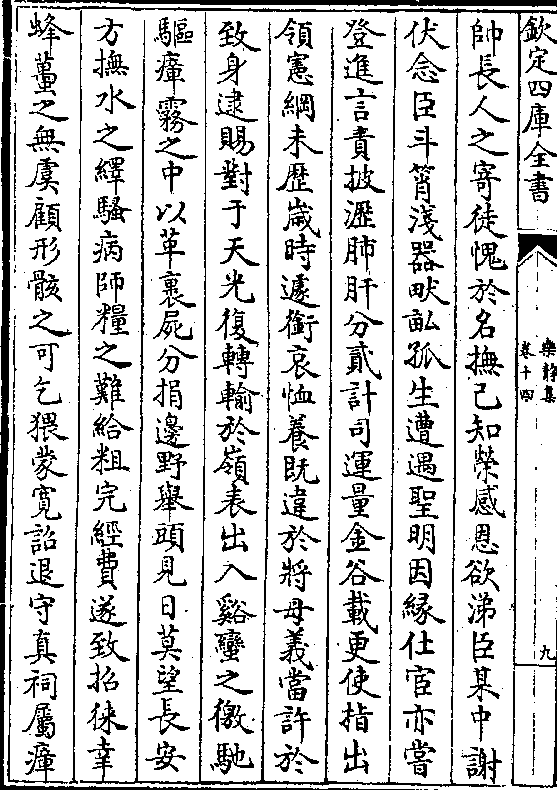 欽定四庫全書
樂静集
卷十四
九
帥長人之寄徒愧於名撫己知榮感恩欲涕臣某中謝
伏念臣斗筲淺器畎畝孤生遭遇聖明因縁仕宦亦嘗
登進言責披瀝肺肝分貳計司運量金谷載更使指出
領憲綱未歴嵗時遽銜哀恤養既違於將母義當許於
致身逮賜對于天光復轉輸於嶺表出入谿蠻之徼馳
驅瘴霧之中以革裹屍分捐邊野舉頭見日莫望長安
方撫水之繹騷病師糧之難給粗完經費遂致招徠幸
蜂蠆之無虞顧形骸之可乞猥蒙寛詔退守真祠屬瘴